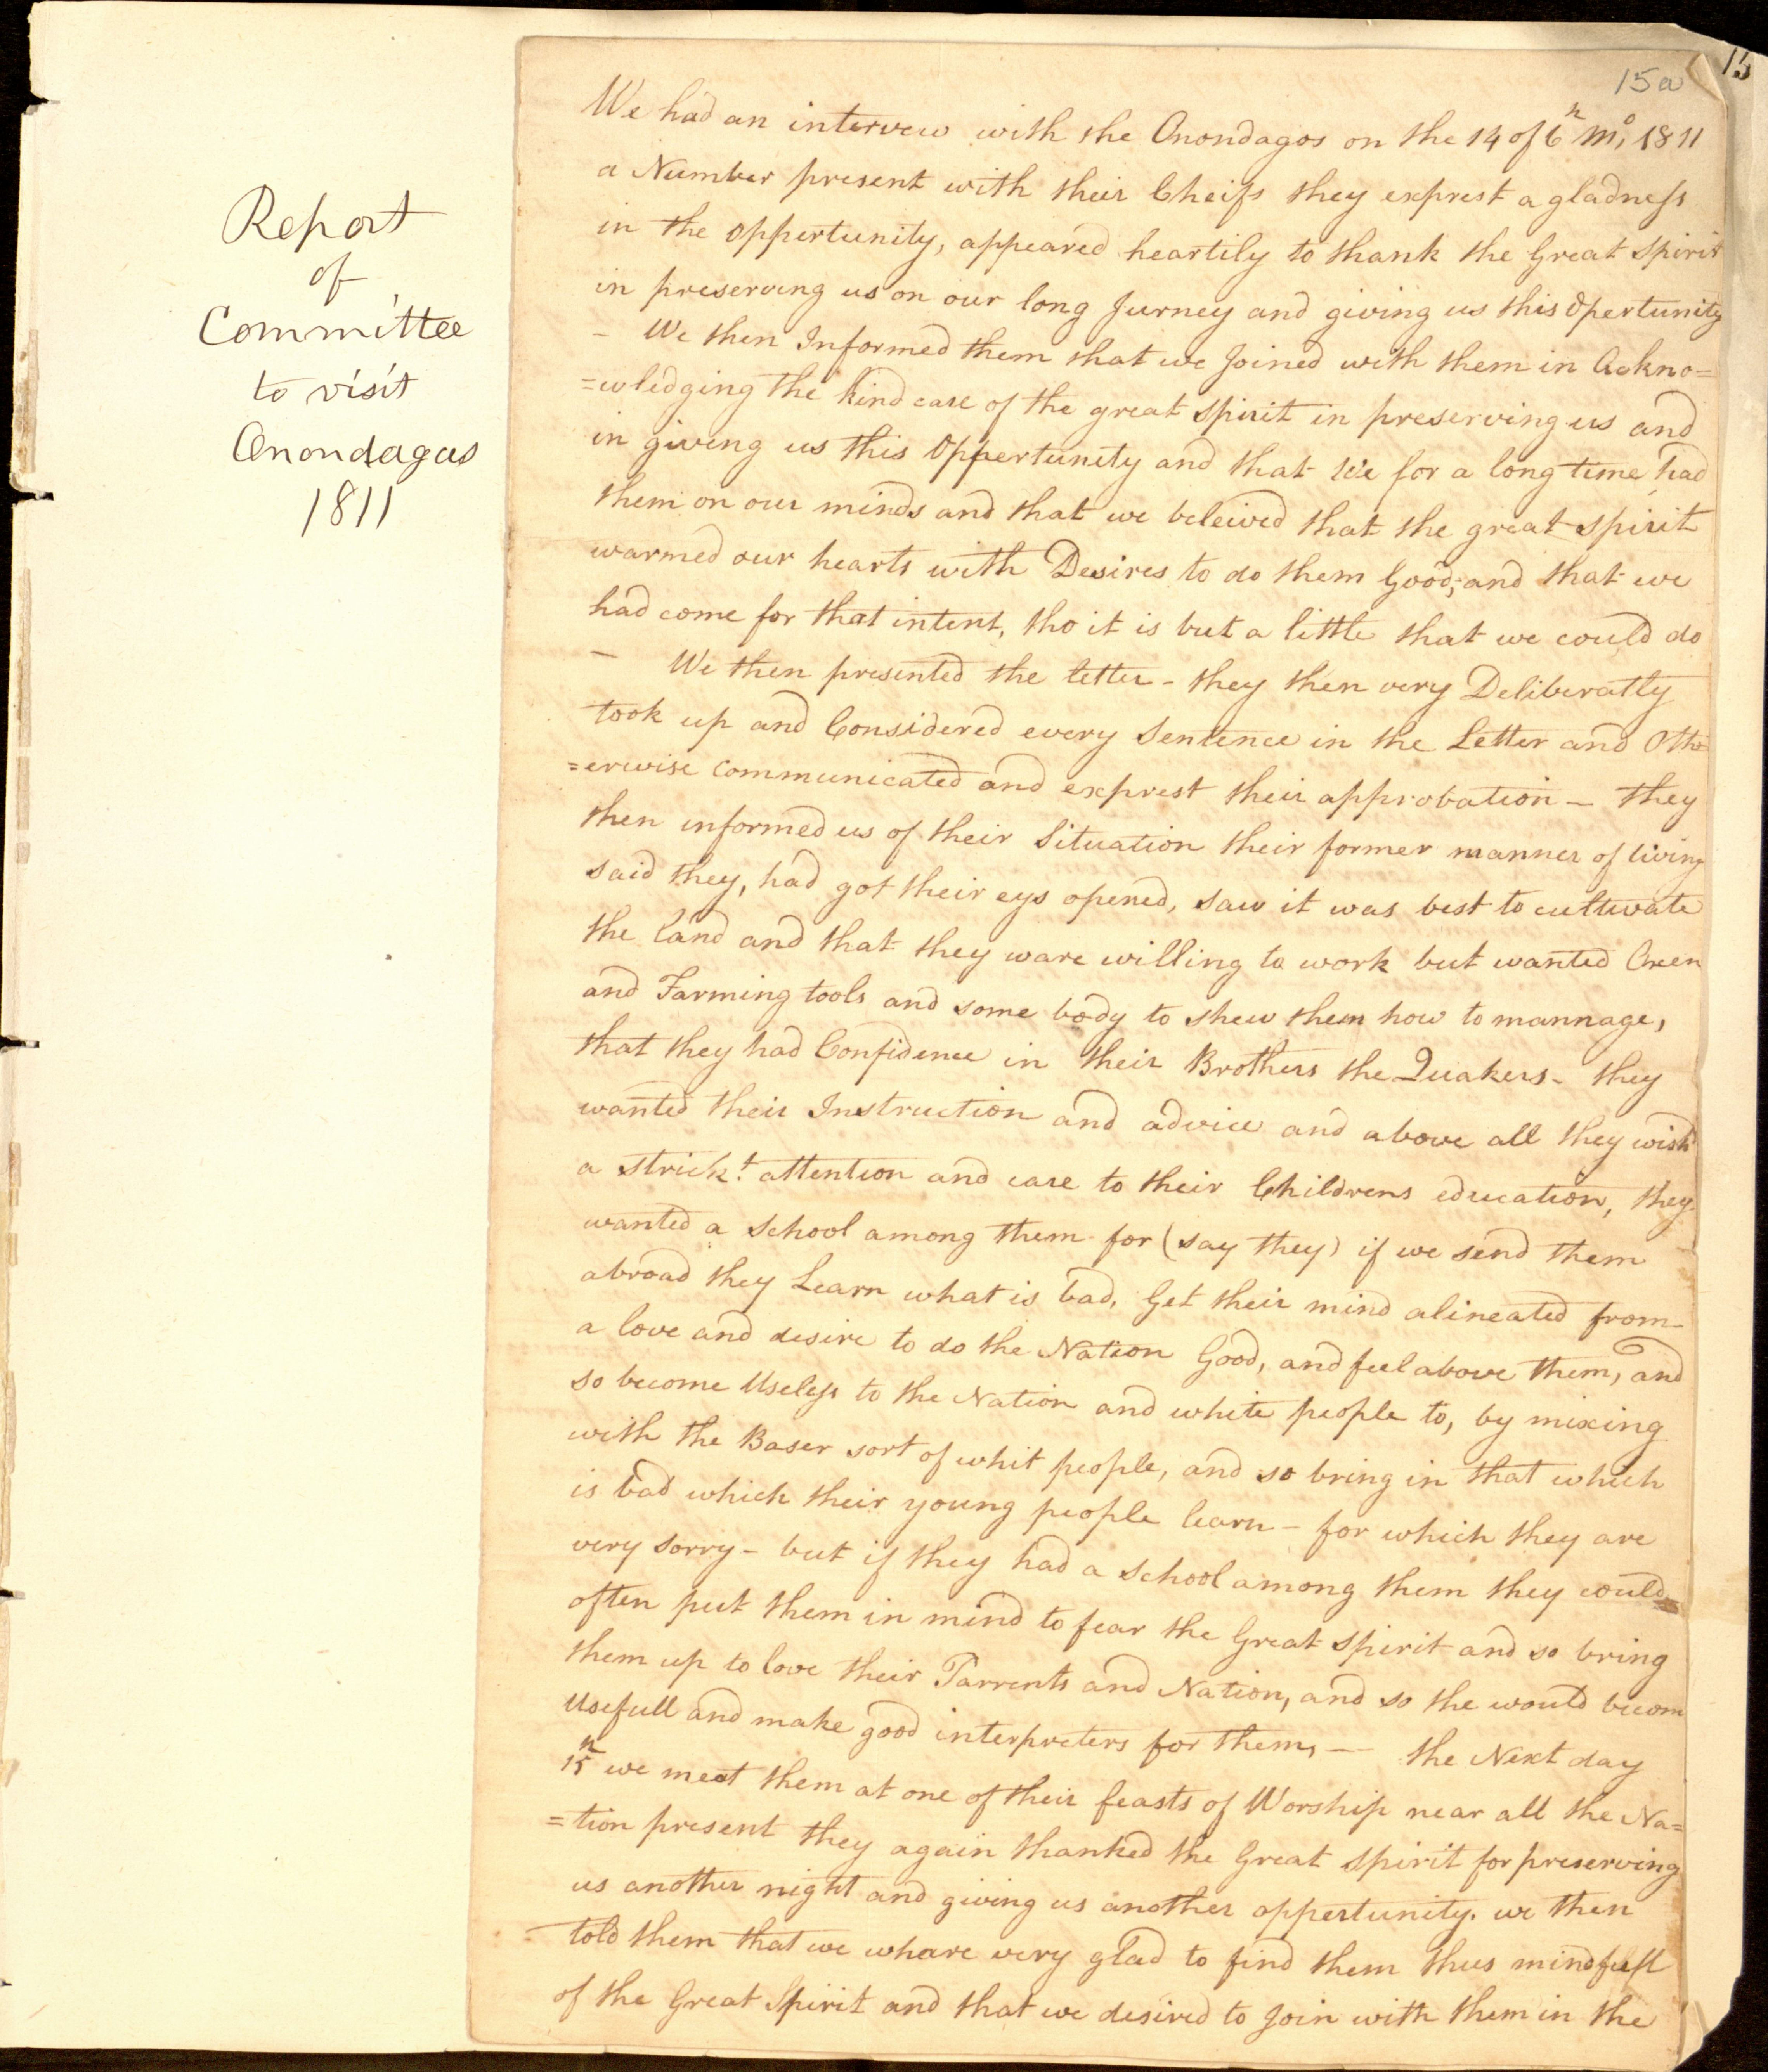 Report
of
Committee
to visit
Onondagas
1811
15
15a
We had an intervew with the Onondagos on the 14 of 6th Mo, 1811
a Number present with their Cheifs they exprest a gladness
in the oppertunity, appeared heartily to thank the Great Spirit
in preserving us on our long Jurney and giving us this Opertunity
- We then Informed them that we Joined with them in Ackno=
=wledging the kind care of the great Spirit in preserving us and
in giveng us this Oppertunity and that We for a long time had
them on our minds and that we beleived that the great Spirit
warmed our hearts with Desires to do them Good, and that we
had come for that intent, tho it is but a little that we could do
- We then presented the letter - they then very Deliberatly
took up and Considered every Sentence in the Letter and Oth=
=erwise communicated and exprest their approbation - they
then informed us of their Situation their former manner of living
said they, had got their eys opened, saw it was best to cultivate
the land and that they ware willing to work but wanted Oxen
and Farming tools and some body to shew them how to mannage,
that they had Confidence in their Brothers the Quakers - they
wanted their Instruction and advice and above all they wish
a strickt attention and care to their Childrens education, they
wanted a School among them for (say they) if we send them
abroad they Learn what is bad, Get their mind alineated from
a love and desire to do the Nation Good, and feel above them, and
so become Useless to the Nation and white people to, by mixing
with the Baser sort of whit people, and so bring in that which
is bad which their young people learn - for which they are
very sorry - but if they had a School among them they could
often put them in mind to fear the Great Spirit and so bring
them up to love their Parrents and Nation, and so the would becom
Usefull and make good interpreters for them, — the Next day
15th we meet them at one of their feasts of Worship near all the Na=
=tion present they again thanked the Great Spirit for preserving
us another night and giving us another oppertunity. we then
told them that we whare very glad to find them thus mindfull
of the Great Spirit and that we desired to Join with them in the